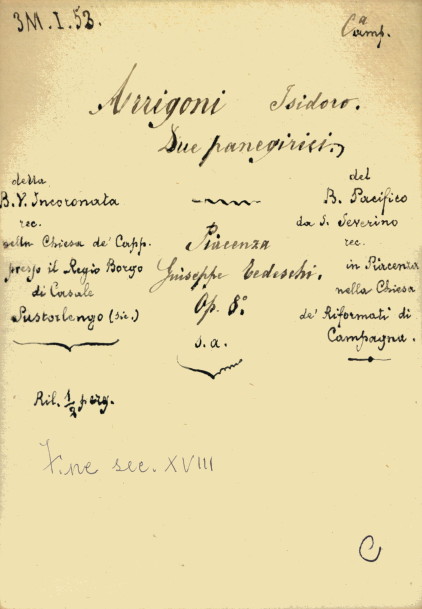 3M.I.53.
Camp.ᵃ
Arrigoni Isidoro.
Due panegirici,
della
B. V. Incoronata
rec.
nella Chiesa de' Capp.
presso il Regio Borgo
di Casale
Pustorlengo (sic.)
del
B. Pacifico
da S. Severino
rec.
in Piacenza
nella Chiesa
de' Riformati di
Campagna.
Piacenza
Giuseppe Tedeschi.
Op. 8°
s. a.
Ril. 1/2 perg.
Fine sec. XVIII
C